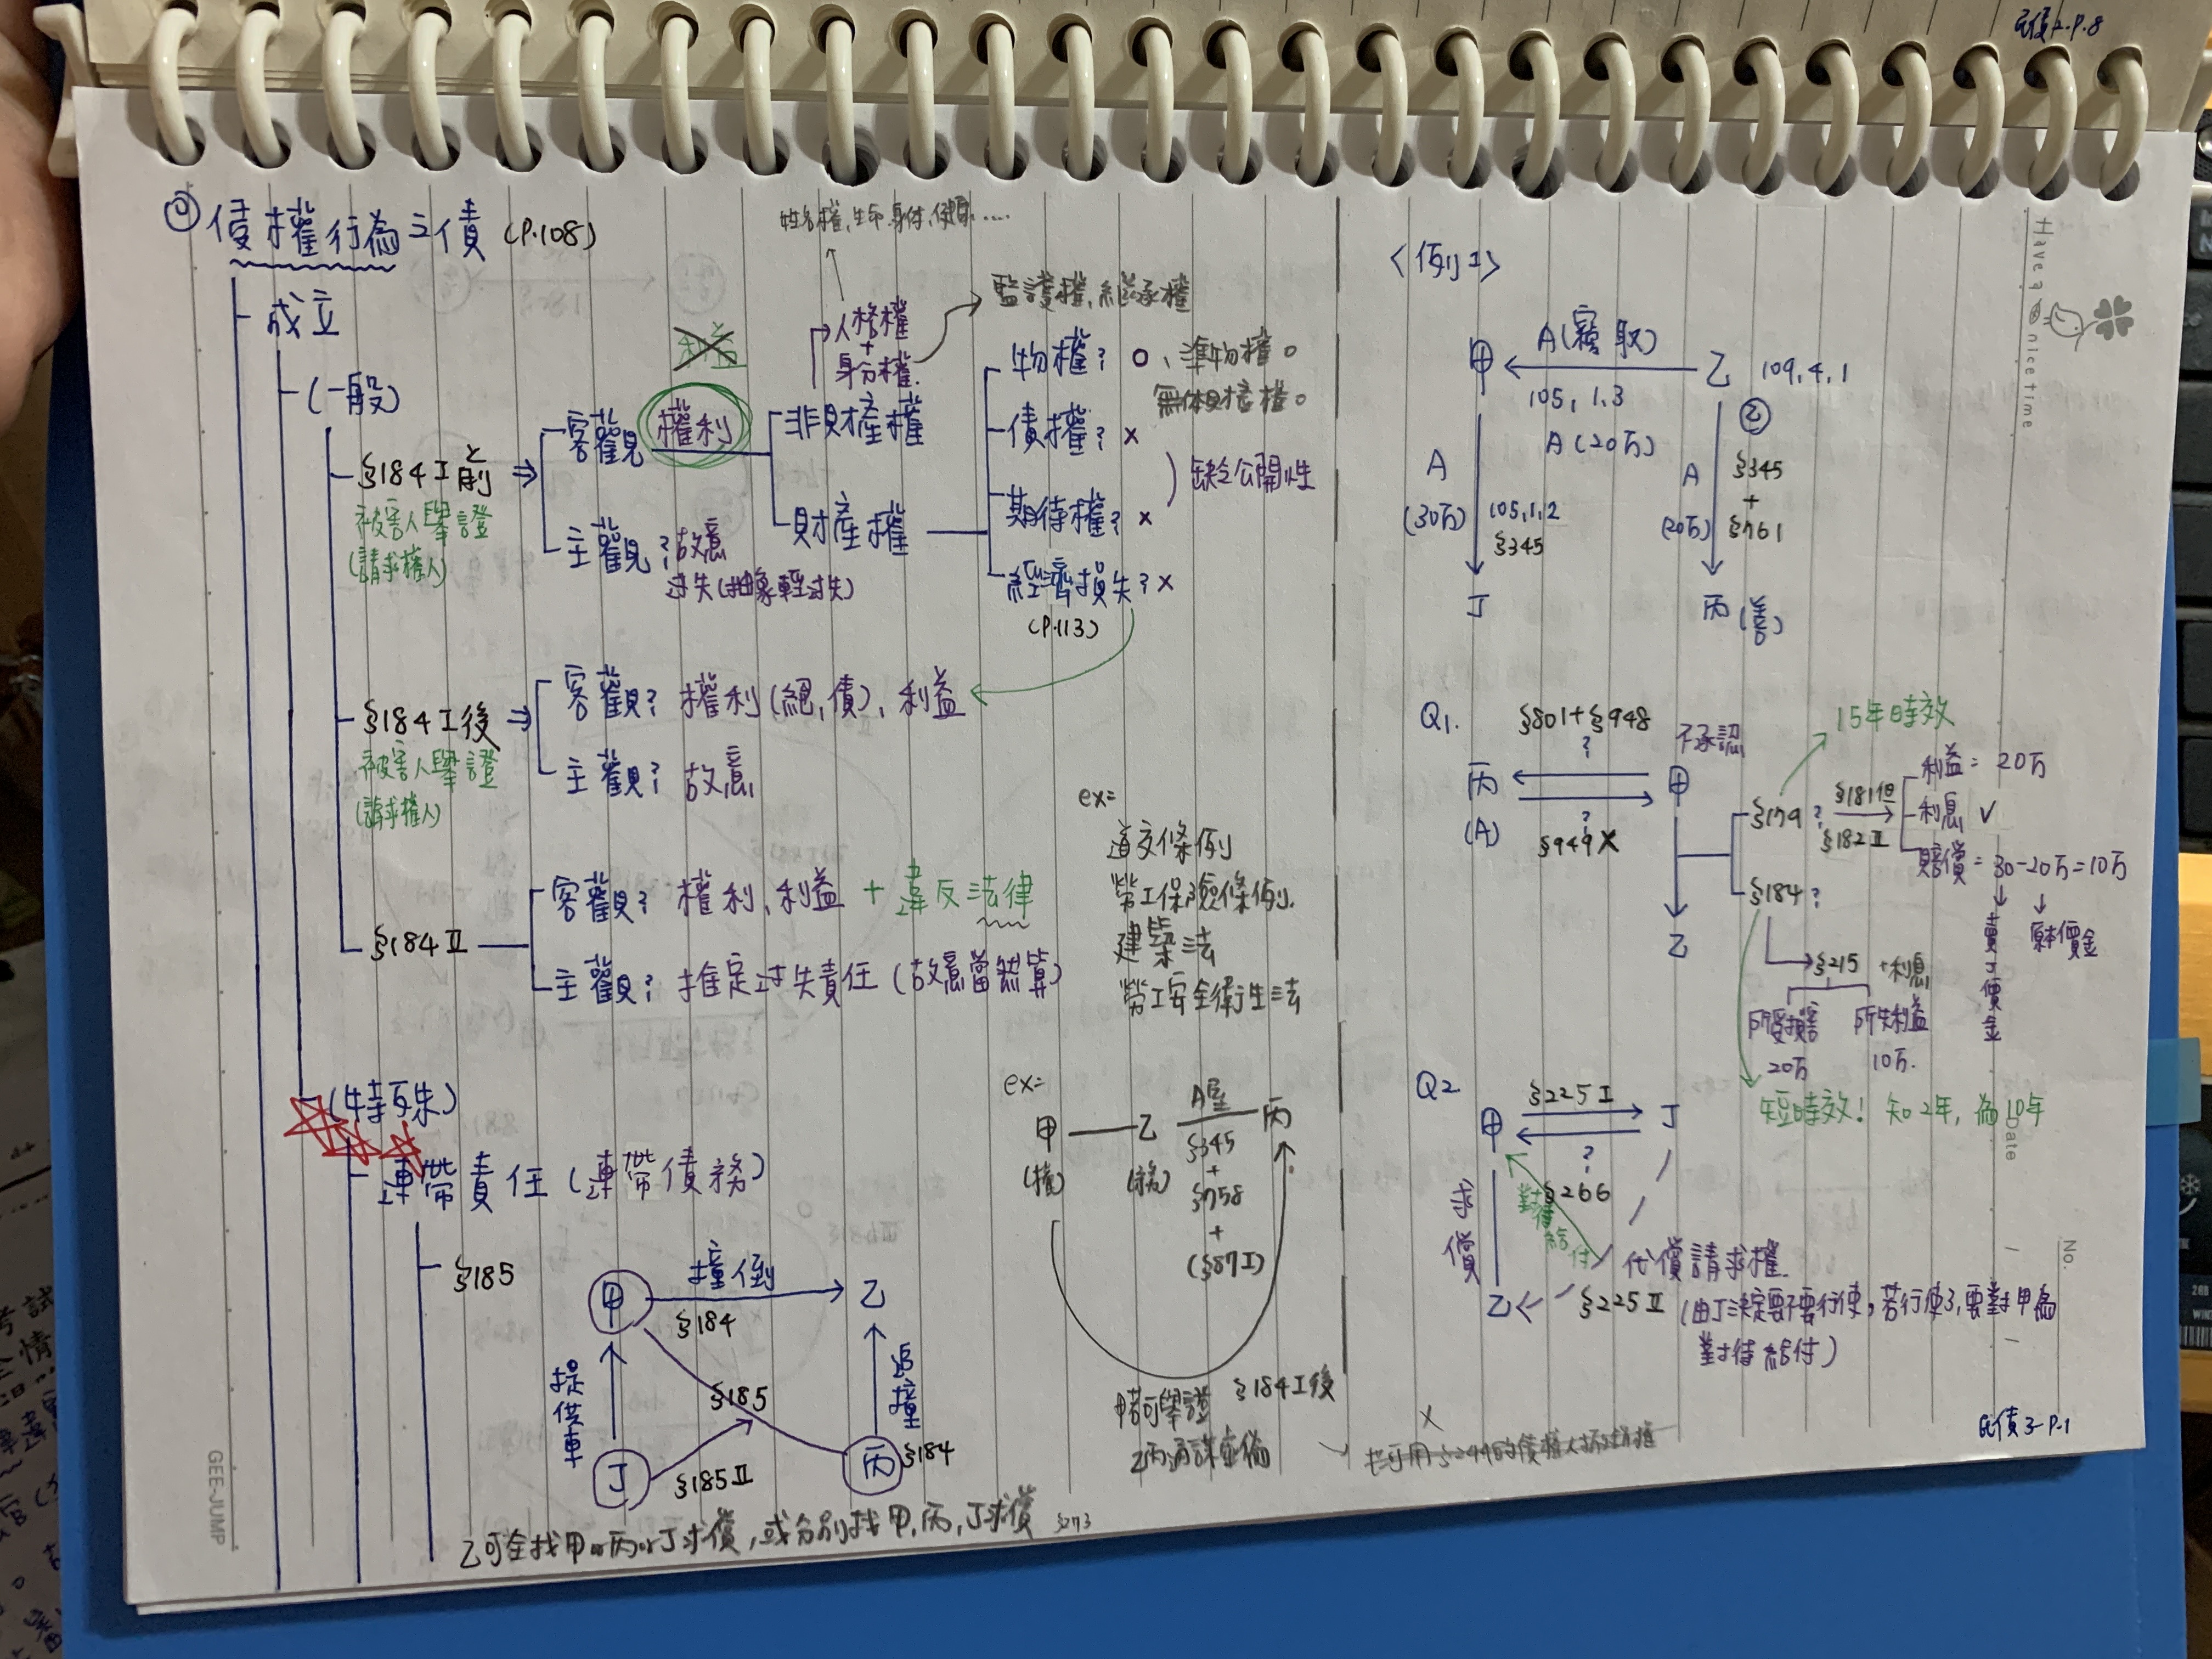 民債2-P.8
侵權行為之債 (P.108)
姓名權,生命.身体,健康.....
<例工>
成立
監護權,繼承權
人格權
+
身分權
(一般)
客觀
權利
非財產權
財產權
物權? O、準物權。
無体財產權。
債權? ×
期待權? ×
缺乏公開性
經濟損失? ×
(P.113)
§184 I 前
被害人舉證
(請求權人)
主觀? 故意
過失(抽象輕過失)
§184 I 後
被害人舉證
(請求權人)
客觀? 權利(絕,債)、利益
主觀? 故意
§184 II
客觀? 權利、利益 + 違反法律
主觀? 推定過失責任 (故意當然算)
ex=
道交條例
勞工保險條例.
建築法
勞工安全衛生法
(特殊)
連帶責任 (連帶債務)
§185
甲
撞倒
乙
§184
提供車
§185
追撞
丁
§185 II
丙
§184
乙可全找甲or丙or丁求償,或分別找甲,丙,丁求償 §273
ex=
甲
(權)
乙
(務)
A屋
丙
§345
+
§758
+
(§87 I)
甲若可舉證
乙丙通謀虛偽
§184 I 後
甲
A(竊取)
乙
109,4,1
105,1.3
A(20万)
A
(30万)
105,1,2
§345
丁
A
(20万)
②
§345
+
§761
丙(善)
Q1.
§801+§948
?
不承認
15年時效
丙
(A)
甲
?
§949 X
乙
§179 ?
§181但
§182 II
利益 = 20万
利息 ✓
賠償 = 30-20万=10万
賣丁價金
原本價金
§184 ?
§215 +利息
所受損害
20万
所失利益
10万.
短時效! 知2年, 為10年
Q2
§225 I
甲
丁
?
§266
對待給付
求償
乙
代償請求權.
§225 II (由丁決定要不要行使,若行使了,要對甲為
對待給付)
×
民債3-P.1
Have a nice time
Date
No.
GEE-JUMP